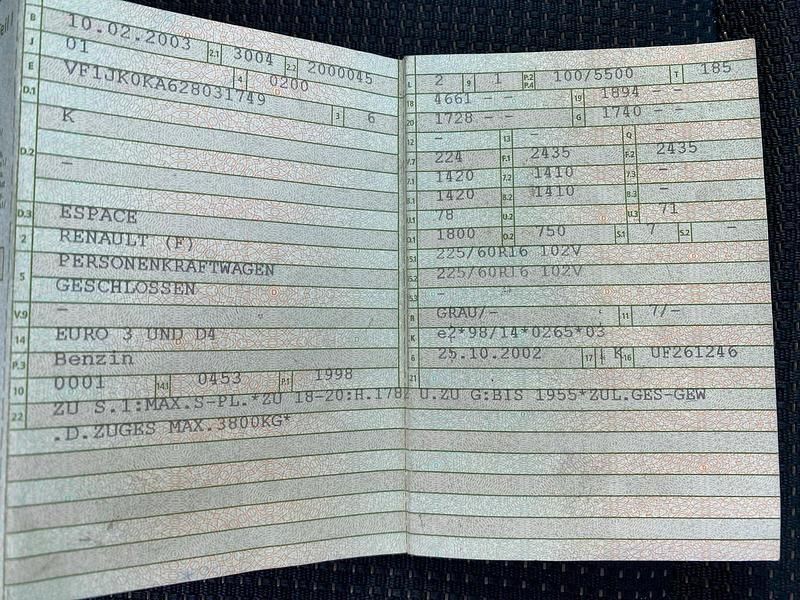 B 10.02.2003 2.1 3004 2.2 2000045
J 01 4 0200
E VF1JK0KA628031749 3 6
D.1 K
D.2 –
D.3 ESPACE
2 RENAULT (F)
5 PERSONENKRAFTWAGEN
GESCHLOSSEN
V.9 –
14 EURO 3 UND D4
P.3 Benzin
10 0001 14.1 0453 P.1 1998
L 2 9 1 P.2 P.4 100/5500 T 185
18 4661 – – 19 1894 – –
20 1728 – – G 1740 – –
12 – 13 – Q –
V.7 224 F.1 2435 F.2 2435
7.1 1420 7.2 1410 7.3 –
8.1 1420 8.2 1410 8.3 –
U.1 78 U.2 U.3 71
O.1 1800 O.2 750 S.1 7 S.2 –
15.1 225/60R16 102V
15.2 225/60R16 102V
15.3 –
R GRAU/– 11 7/–
K e2*98/14*0265*03
6 25.10.2002 17 K 16 UF261246
21
22 ZU S.1:MAX.S-PL.*ZU 18-20:H.1782 U.ZU G:BIS 1955*ZUL.GES-GEW
.D.ZUGES MAX.3800KG*